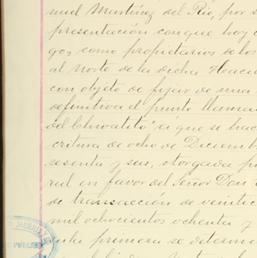 nuel Martinez del Rio, por s
presentación conque hoy
go, como propietarios de los
al norte de la dicha Hacie
con objeto de fijar de una
definitiva el punto llamado
del Chocolatito á que se hac
critura de ocho de Diciemb
sesenta y seis, otorgada po
red en favor del Señor Don
de transacción de veintic
mil ochocientos ochenta y
primera se determi